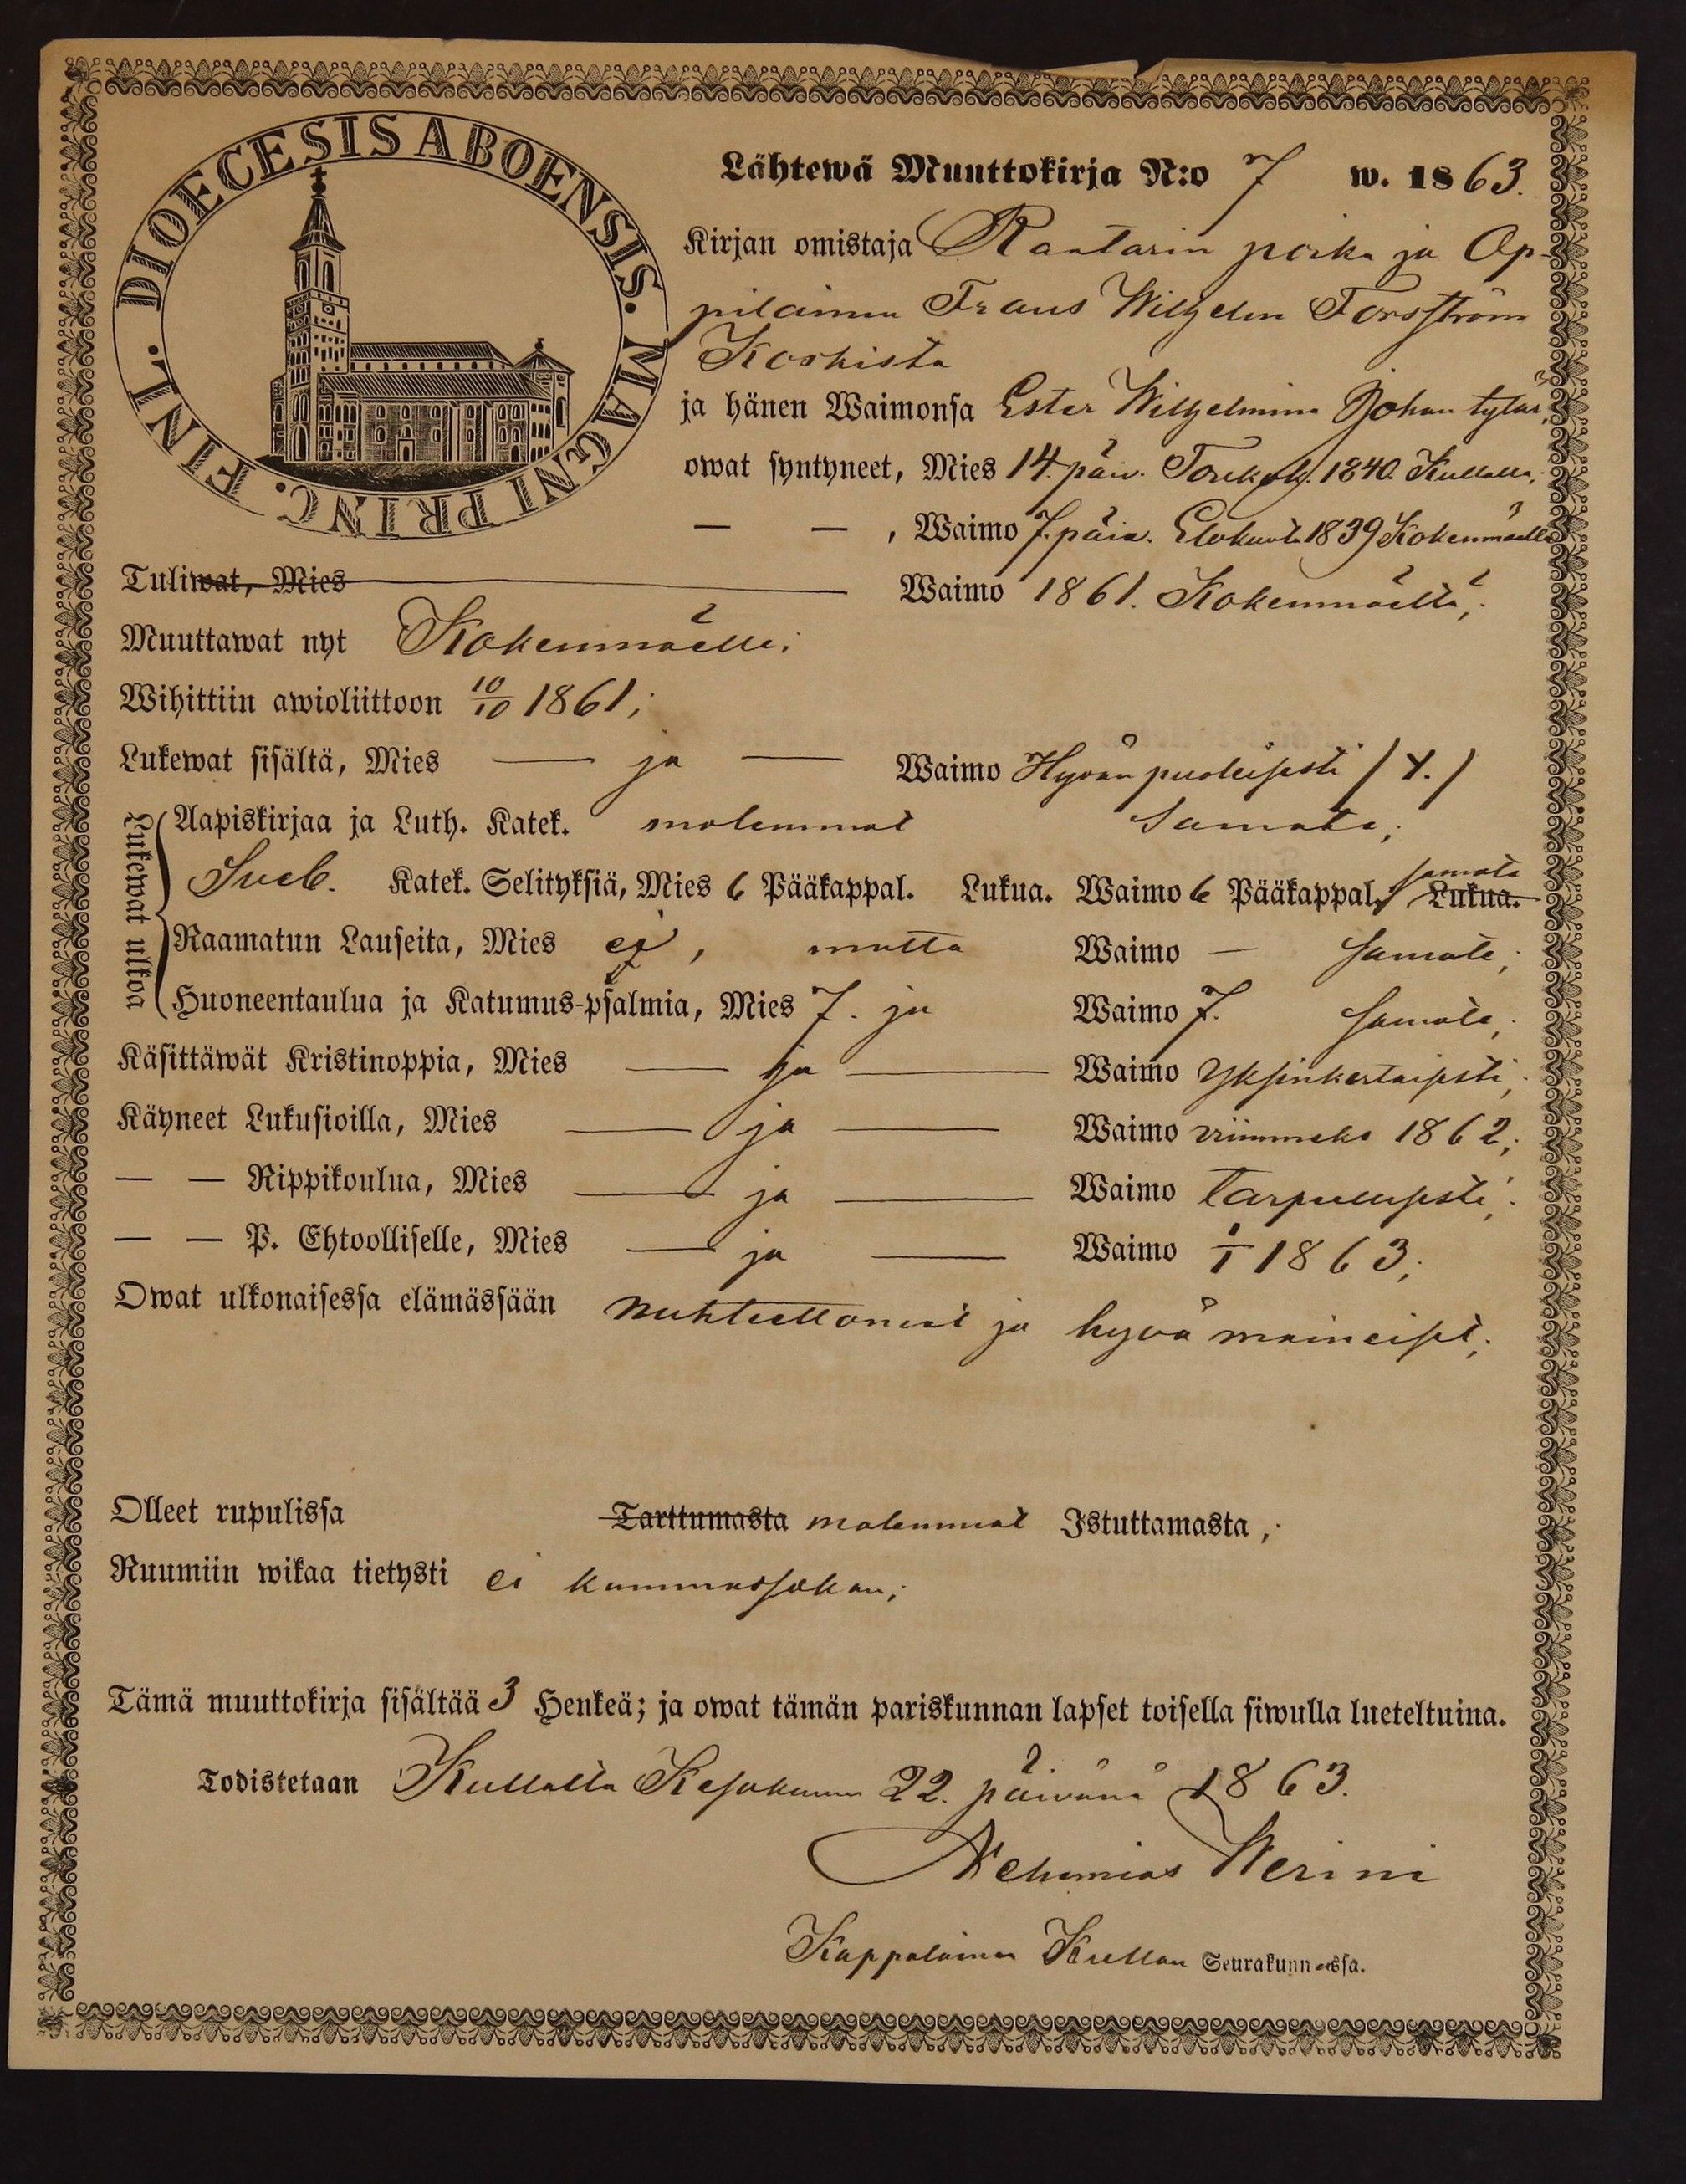 DIOECESIS ABOENSIS. MAGNI PRINC. FINL.
Lähtewä Muuttokirja N:o 7 w. 1863.
Kirjan omistaja Raatarin poika ja Op-
pilainen Frans Wilhelm Forsström
Koskista
ja hänen Waimonsa Ester Wilhelmina Johan tytär,
owat syntyneet, Mies 14. päiv. 1840. Kullalla,
— — , Waimo 7. päiv. Elokuuta 1839 Kokenmäellä
Tuliwat, Mies Waimo 1861. Kokenmäeltä;
Muuttawat nyt Kokenmäelle;
Wihittiin awioliittoon 10/10 1861;
Lukewat sisältä, Mies — ja — Waimo Hyvän puoleisesti
Lukewat ulkoa
Aapiskirjaa ja Luth. Katek. molemmat Samate;
Sveb. Katek. Selityksiä, Mies 6 Pääkappal. Lukua. Waimo 6 Pääkappal. samate Lukua.
Raamatun Lauseita, Mies ej, mutta Waimo — samate;
Huoneentaulua ja Katumus-psalmia, Mies 7. ja Waimo 7. samate;
Käsittäwät Kristinoppia, Mies — ja — Waimo Yksinkertaisesti;
Käyneet Lukusioilla, Mies — ja — Waimo viimmeks 1862;
— — Rippikoulua, Mies — ja — Waimo tarpeellisesti;
— — P. Ehtoolliselle, Mies — ja — Waimo 1/1 1863;
Owat ulkonaisessa elämässään nuhteettomat ja hyvä maineiset;
Olleet rupulissa Tarttumasta molemmat Istuttamasta;
Ruumiin wikaa tietysti ei kummassakan;
Tämä muuttokirja sisältää 3 Henkeä; ja owat tämän pariskunnan lapset toisella siwulla lueteltuina.
Todistetaan Kullalla Kesäkuun 22. päivänä 1863.
Nehemias Merini
Kappalainen Kullan Seurakunnassa.